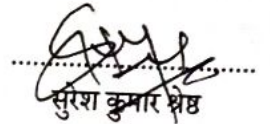 सुरेश कुमार श्रेष्ठ